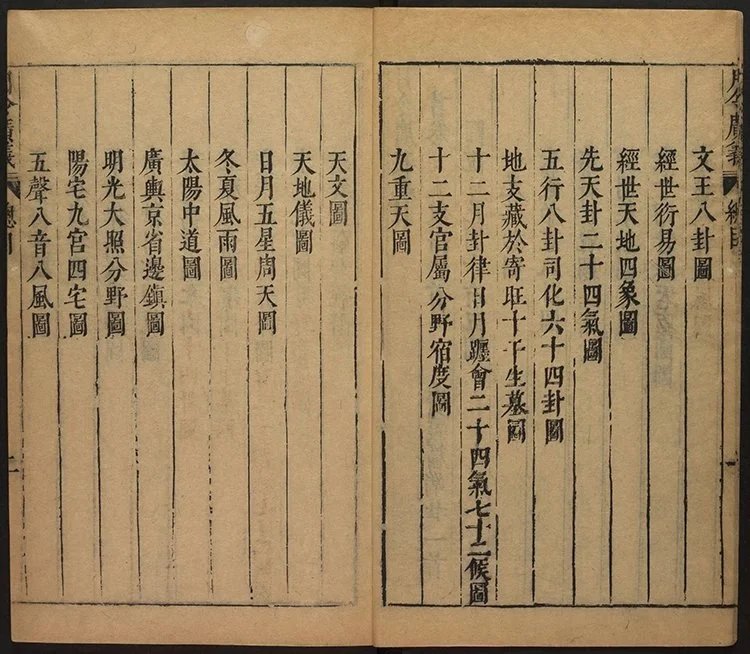 月令廣義 總目 一
文王八卦圖
經世衍易圖
經世天地四象圖
先天卦二十四氣圖
五行八卦司化六十四卦圖
地支藏於寄旺十干生墓圖
十二月卦律日月躔會二十四氣七十二候圖
十二支宮屬分野宿度圖
九重天圖
天文圖
天地儀圖
日月五星周天圖
冬夏風雨圖
太陽中道圖
廣輿京省邊鎮圖
明光大照分野圖
陽宅九宮四宅圖
五聲八音八風圖
月令廣義 總目 二